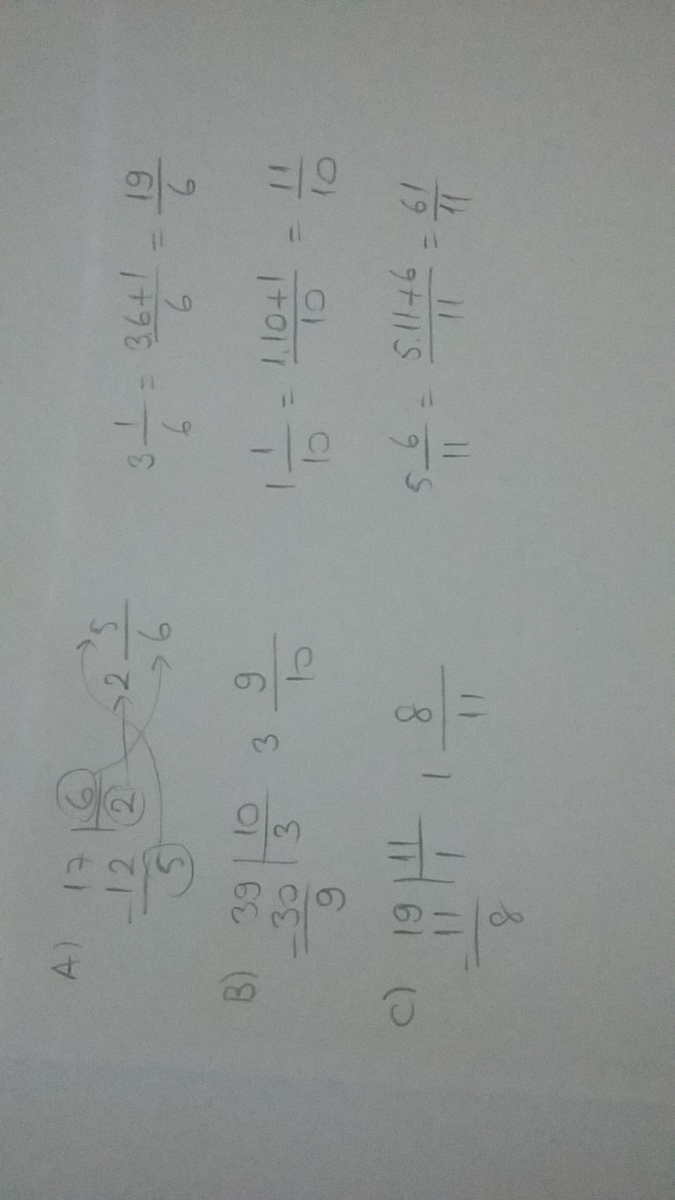 A) 17 | 6
-12 | 2
5
2 5/6
3 1/6 = 3.6+1/6 = 19/6
B) 39 | 10
-30 | 3
9
3 9/10
1 1/10 = 1.10+1/10 = 11/10
C) 19 | 11
-11 | 1
8
1 8/11
5 6/11 = 5.11+6/11 = 61/11